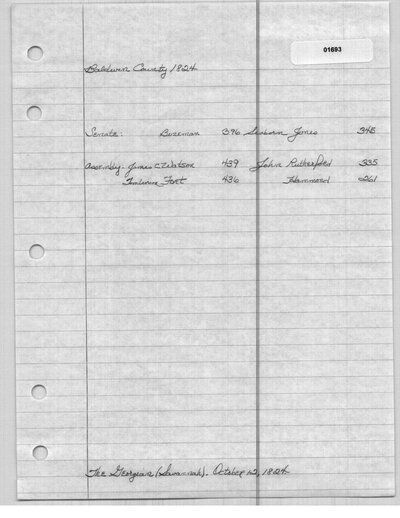 01693
Baldwin County 1824
Senate: Bozeman 396 Seaborn Jones 345
Assembly: James C. Watson 439 John Rutherford 335
Tomlinson Fort 436 Hammond 261
The Georgian (Savannah). October 12, 1824